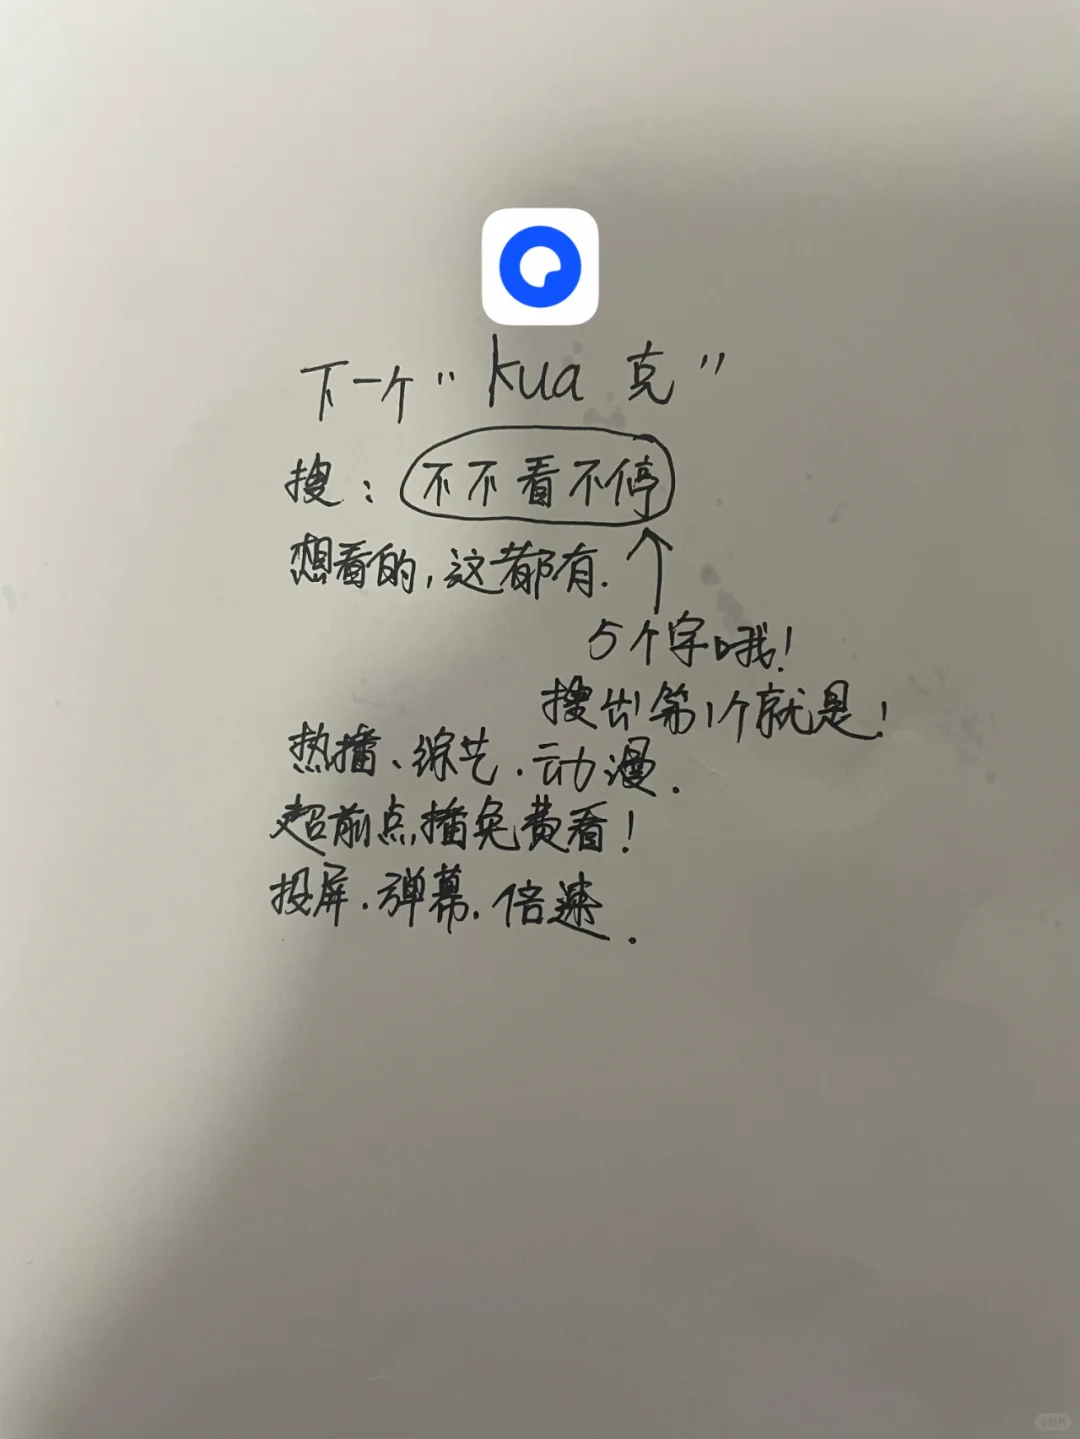 下一个“kua 克”
搜：不不看不停
想看的，这都有.
5个字哦！
搜出第1个就是！
热播、综艺.动漫.
超前点播免费看！
投屏.弹幕.倍速.
小红书